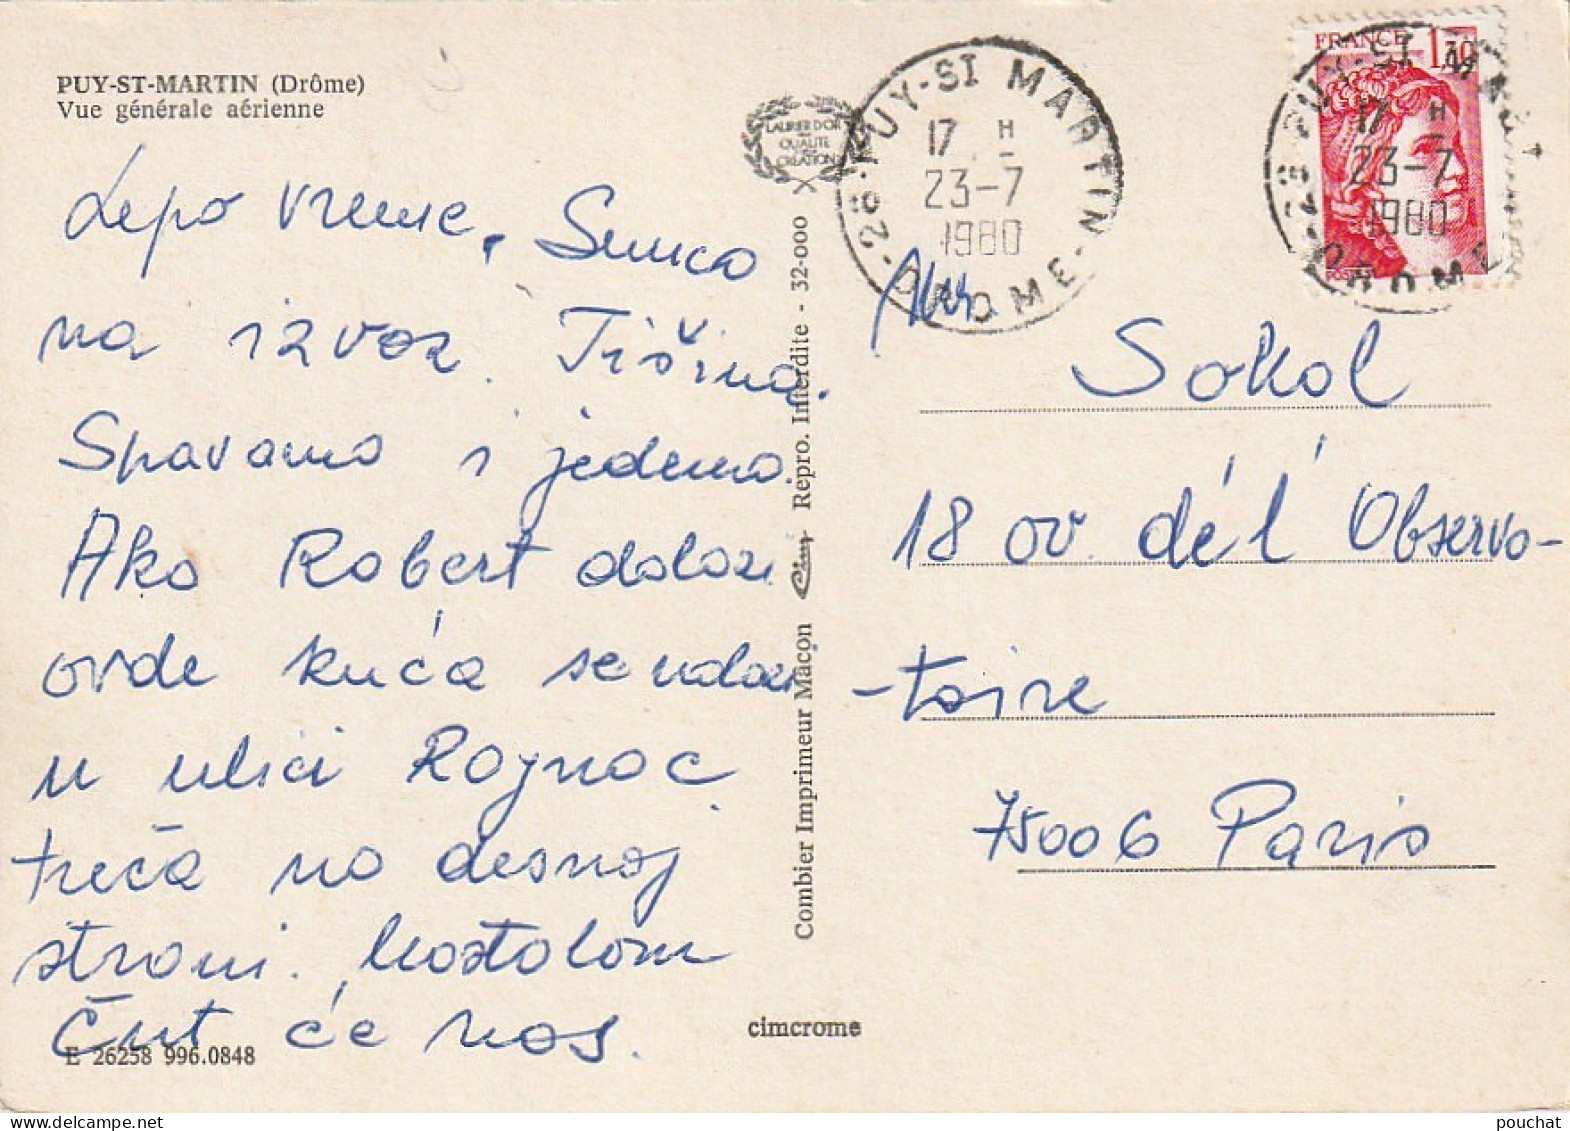 PUY-ST-MARTIN (Drôme)
Vue générale aérienne
Lepo vreme. Sunca
na izvoz. Tišina.
Spavamo i jedemo.
Ako Robert dolazi
ovde kuća se nalazi
u ulici Rojnac
treća na desnoj
strani. Uostalom
Čut će nas.
E 26258 996.0848
Combier Imprimeur Macon Cim Repro. Interdite - 32-000
cimcrome
LAURIER D'OR
QUALITÉ
CREATION
26 PUY-ST MARTIN
17 H
23-7
1980
DROME
FRANCE 1,30
26 PUY-ST MART
17 H
23-7
1980
DROME
Sokol
18 av. de l' Observa-
-toire
75006 Paris
pouchat